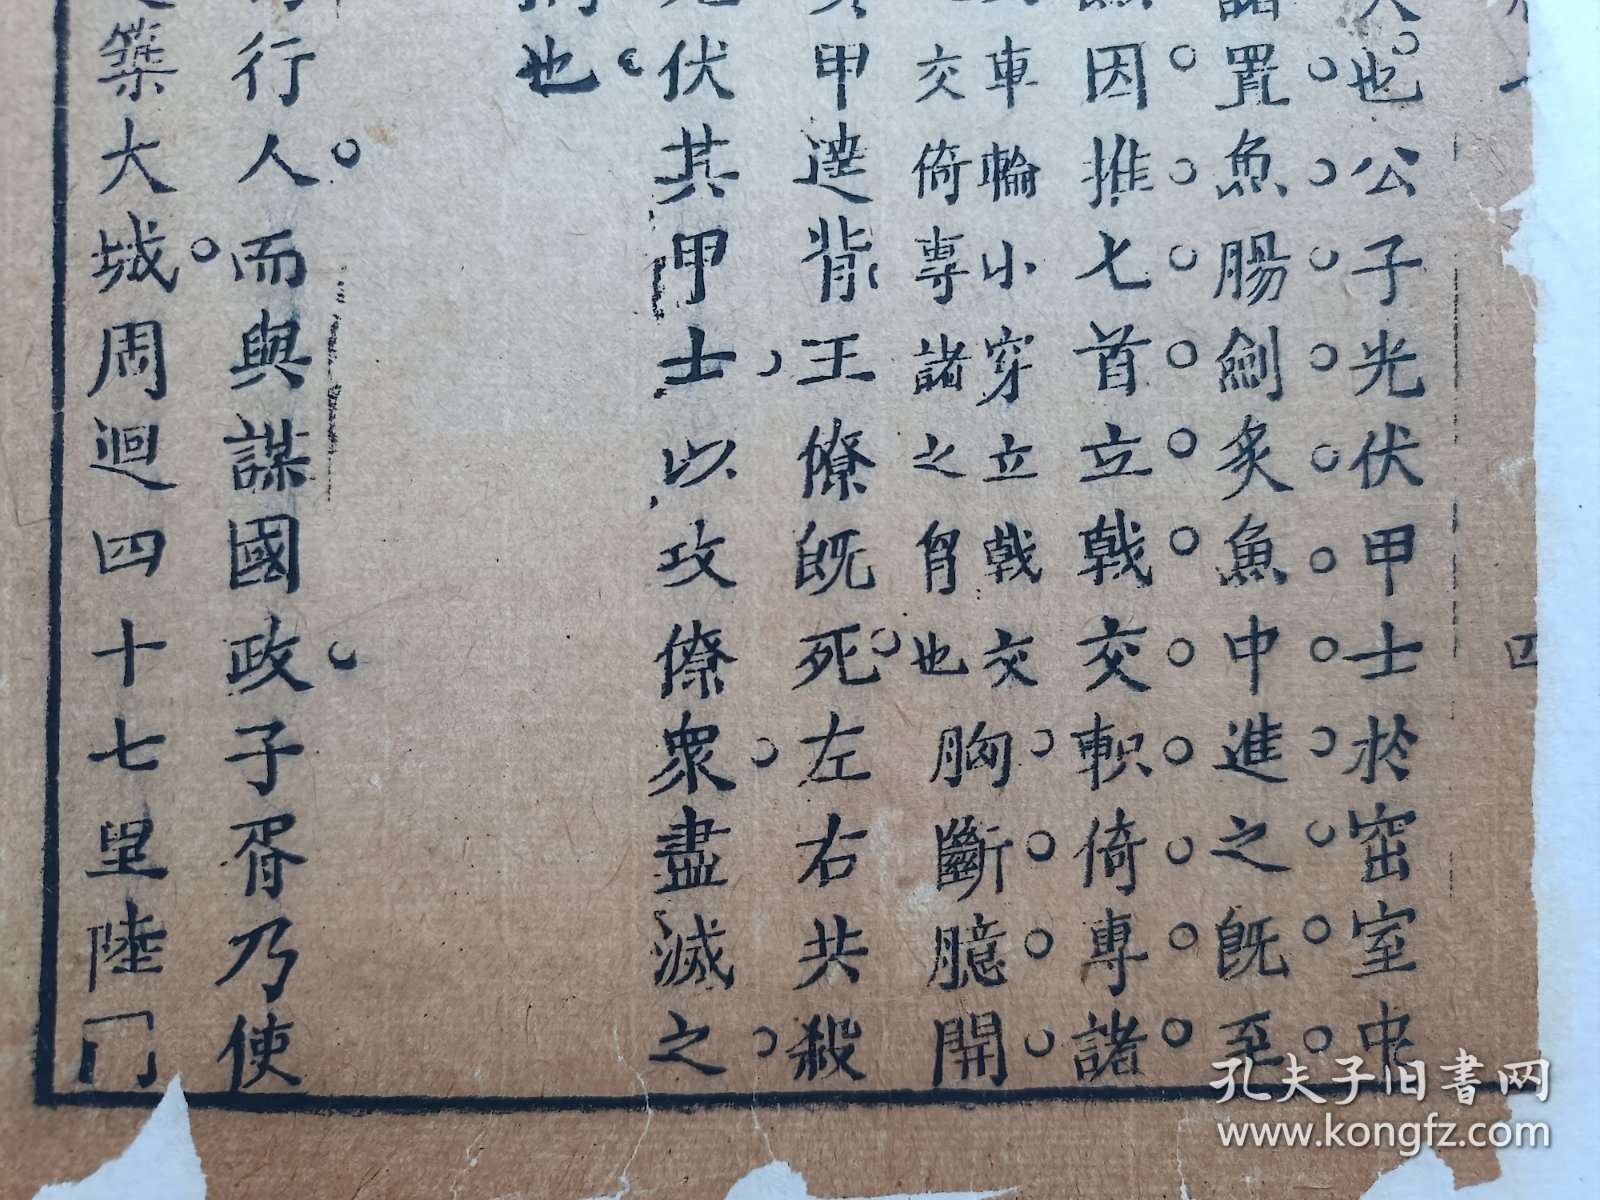 也公子光伏甲士於窋室中
置魚腸劍炙魚中進之既至
因推匕首立戟交軹倚專諸
車輪小穿立戟交
交倚專諸之胷也
胸斷臆開
甲達背王僚既死左右共殺
伏其甲士以攻僚衆盡滅之
也
行人而與謀國政子胥乃使
築大城周迴四十七里陸門
四
孔夫子旧書网
www.kongfz.com